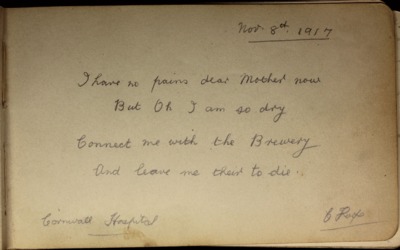 Nov. 8th. 1917
I have no pains dear Mother now
But Oh I am so dry
Connect me with the Brewery
And leave me their to die.
Cornwall Hospital